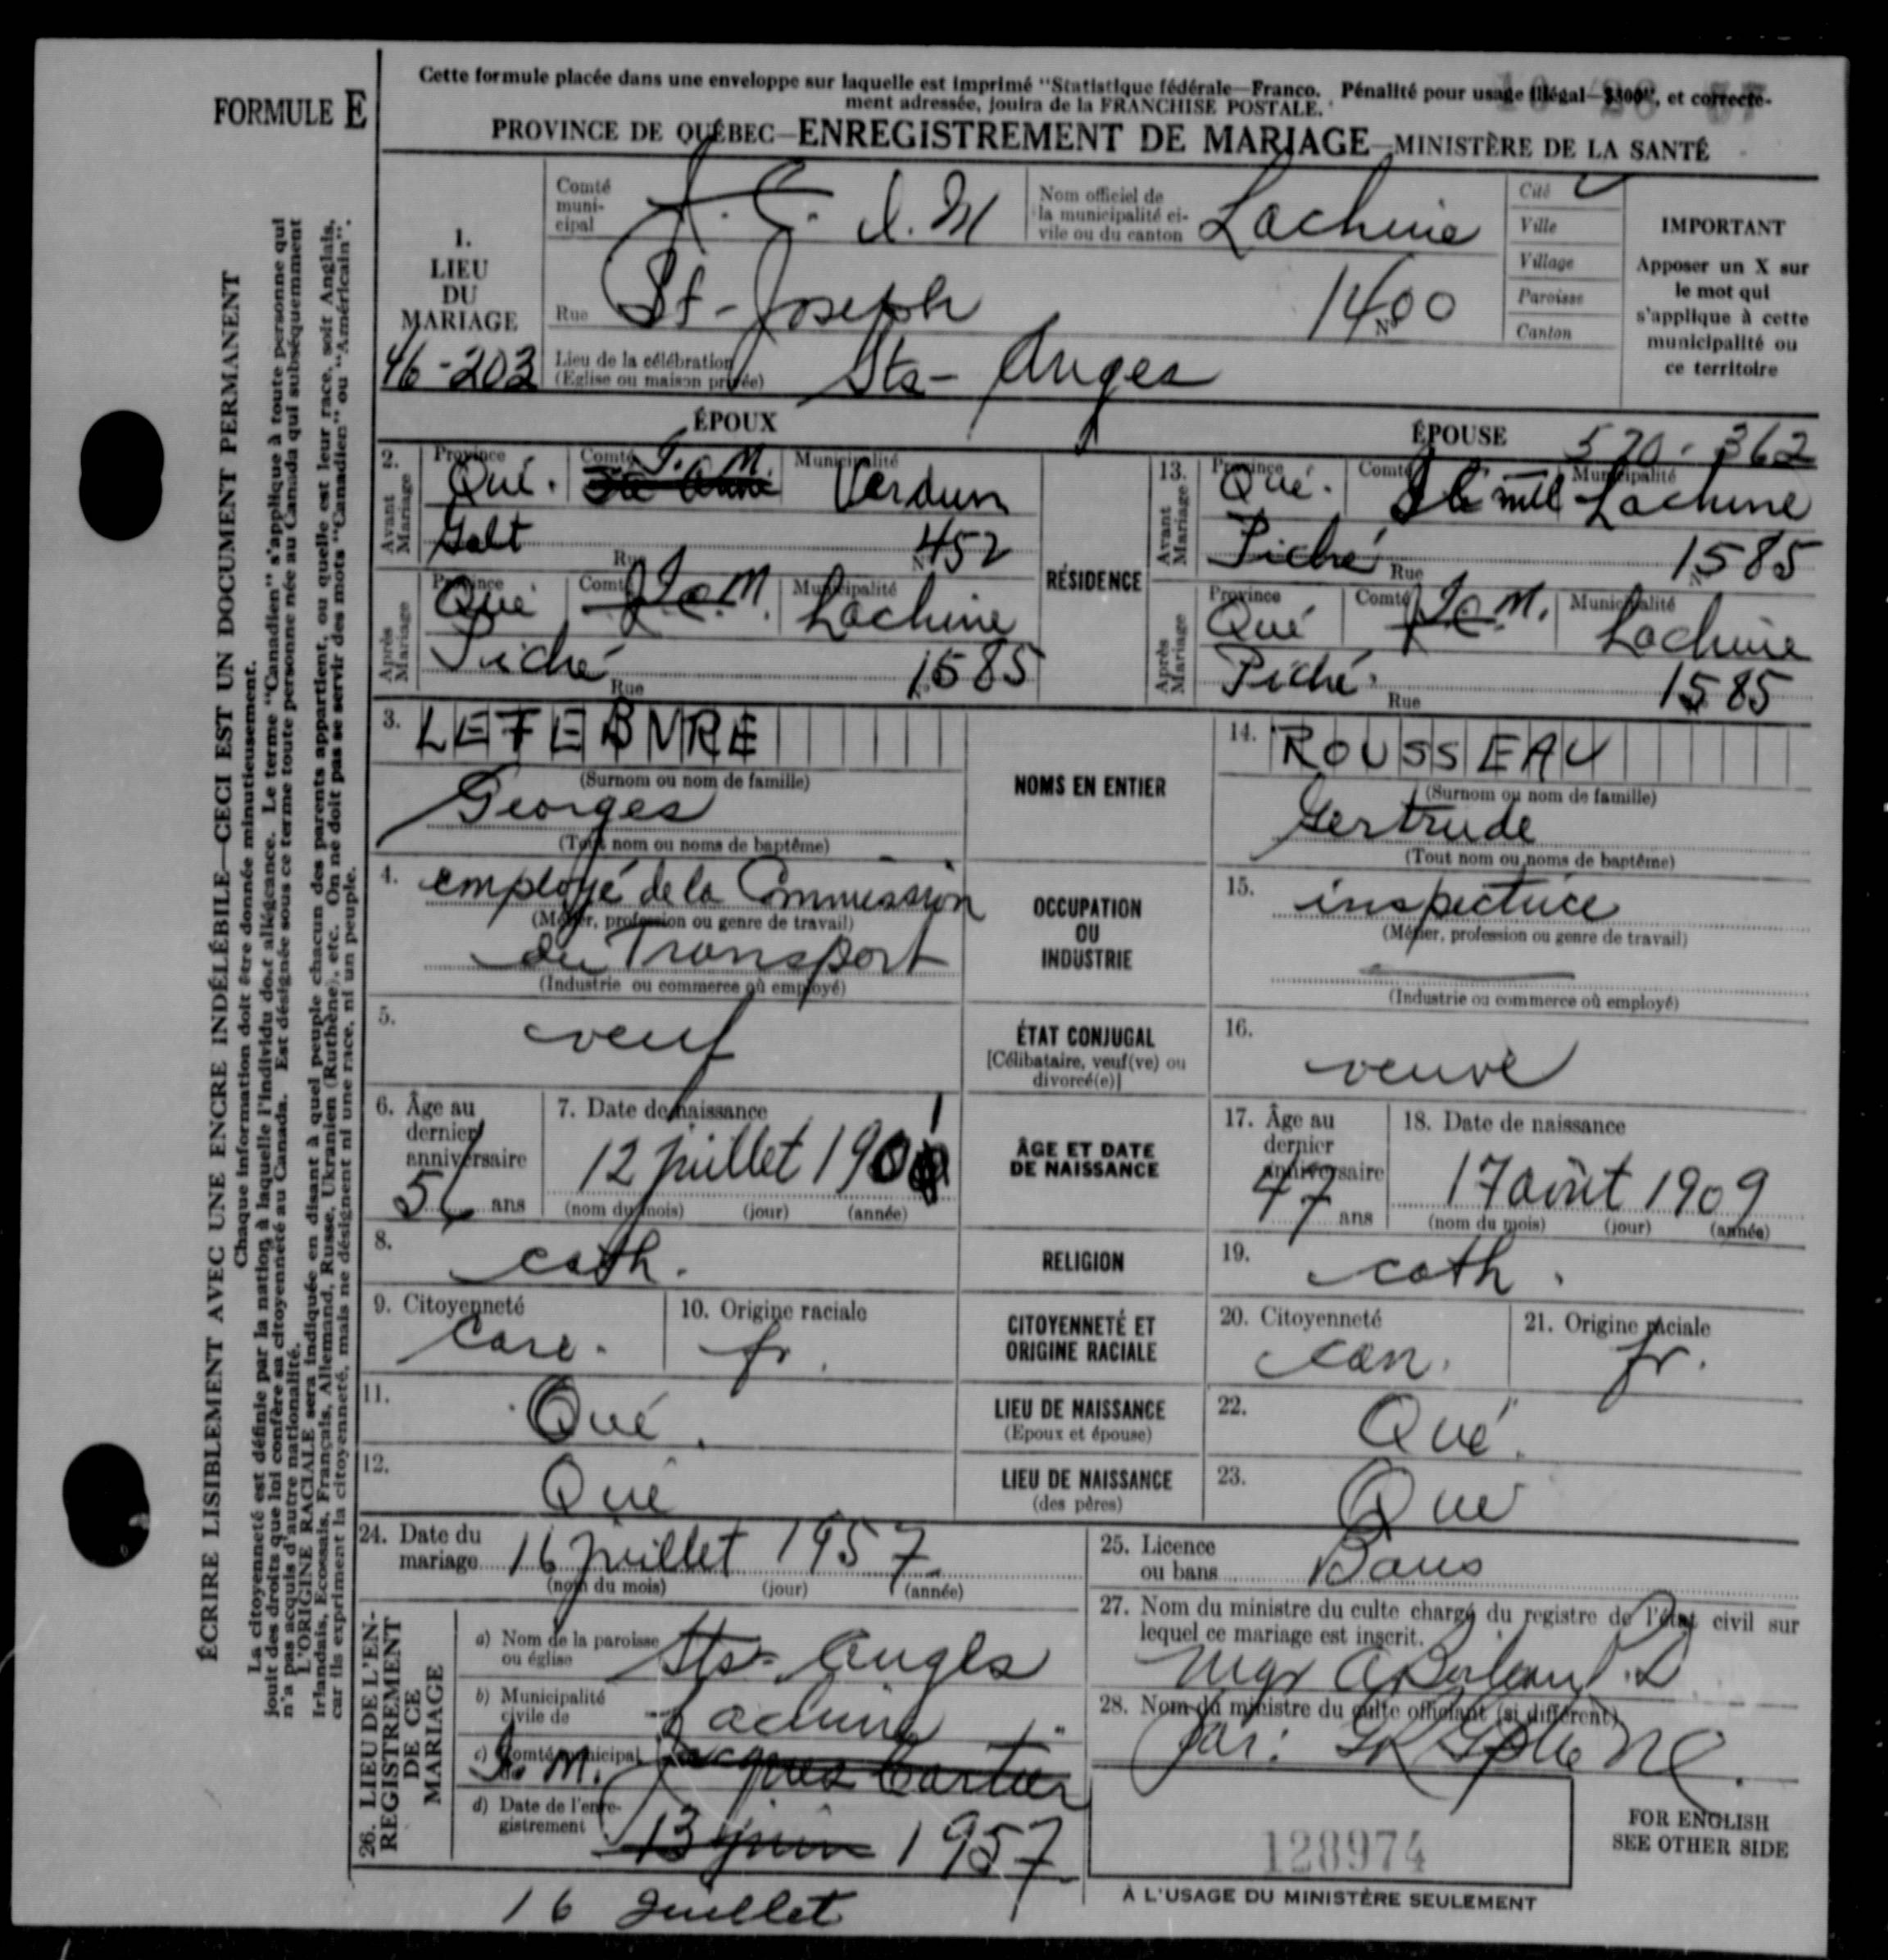 Cette formule placée dans une enveloppe sur laquelle est imprimé "Statistique fédérale—Franco. Pénalité pour usage illégal—$300", et correcte-
ment adressée, jouira de la FRANCHISE POSTALE.
FORMULE E
PROVINCE DE QUÉBEC—ENREGISTREMENT DE MARIAGE—MINISTÈRE DE LA SANTÉ
ÉCRIRE LISIBLEMENT AVEC UNE ENCRE INDÉLÉBILE—CECI EST UN DOCUMENT PERMANENT
Chaque information doit être donnée minutieusement.
La citoyenneté est définie par la nation à laquelle l'individu doit allégeance. Le terme "Canadien" s'applique à toute personne qui
jouit des droits que lui confère sa citoyenneté au Canada. Est désignée sous ce terme toute personne née au Canada qui subséquemment
n'a pas acquis d'autre nationalité.
L'ORIGINE RACIALE sera indiquée en disant à quel peuple chacun des parents appartient, ou quelle est leur race, soit Anglais,
Irlandais, Ecossais, Français, Allemand, Russe, Ukranien (Ruthène), etc. On ne doit pas se servir des mots "Canadien" ou "Américain".
car ils expriment la citoyenneté, mais ne désignent ni une race, ni un peuple.
1.
LIEU
DU
MARIAGE
46-203
Comté
muni-
cipal
I. M
Nom officiel de
la municipalité ci-
vile ou du canton
Lachine
Cité
Ville
Village
Paroisse
Canton
IMPORTANT
Apposer un X sur
le mot qui
s'applique à cette
municipalité ou
ce territoire
Rue St-Joseph No 1400
Lieu de la célébration
(Eglise ou maison privée)
Sts-Anges
ÉPOUX
ÉPOUSE 570-362
2. Avant Mariage
Province Qué. Comté I. M. Municipalité Verdun
Galt Rue No 452
Après Mariage
Province Qué Comté I. M. Municipalité Lachine
Piché Rue No 1585
RÉSIDENCE
13. Avant Mariage
Province Qué. Comté Municipalité Lachine
Piché Rue No 1585
Après Mariage
Province Qué Comté I. M. Municipalité Lachine
Piché Rue No 1585
3. LEFEBVRE
(Surnom ou nom de famille)
Georges
(Tout nom ou noms de baptême)
NOMS EN ENTIER
14. ROUSSEAU
(Surnom ou nom de famille)
Gertrude
(Tout nom ou noms de baptême)
4. employé de la Commission
(Métier, profession ou genre de travail)
du Transport
(Industrie ou commerce où employé)
OCCUPATION
OU
INDUSTRIE
15. inspectrice
(Métier, profession ou genre de travail)
(Industrie ou commerce où employé)
5. veuf
ÉTAT CONJUGAL
[Célibataire, veuf(ve) ou
divorcé(e)]
16. veuve
6. Âge au
dernier
anniversaire
ans
7. Date de naissance
12 juillet 1901
(nom du mois) (jour) (année)
ÂGE ET DATE
DE NAISSANCE
17. Âge au
dernier
anniversaire
47 ans
18. Date de naissance
17 août 1909
(nom du mois) (jour) (année)
8. cath.
RELIGION
19. cath.
9. Citoyenneté
can.
10. Origine raciale
fr.
CITOYENNETÉ ET
ORIGINE RACIALE
20. Citoyenneté
can.
21. Origine raciale
fr.
11. Qué.
LIEU DE NAISSANCE
(Epoux et épouse)
22. Qué.
12. Qué
LIEU DE NAISSANCE
(des pères)
23. Qué
24. Date du
mariage 16 juillet 1957
(nom du mois) (jour) (année)
25. Licence
ou bans Bans
26. LIEU DE L'EN-
REGISTREMENT
DE CE
MARIAGE
a) Nom de la paroisse
ou église
Sts-Anges
b) Municipalité
civile de
Lachine
c) Comté municipal
I. M. Jacques Cartier
d) Date de l'enre-
gistrement
13 juin 1957
16 Juillet
27. Nom du ministre du culte chargé du registre de l'état civil sur
lequel ce mariage est inscrit.
Mgr
28. Nom du ministre du culte officiant (si différent)
par:
128974
À L'USAGE DU MINISTÈRE SEULEMENT
FOR ENGLISH
SEE OTHER SIDE